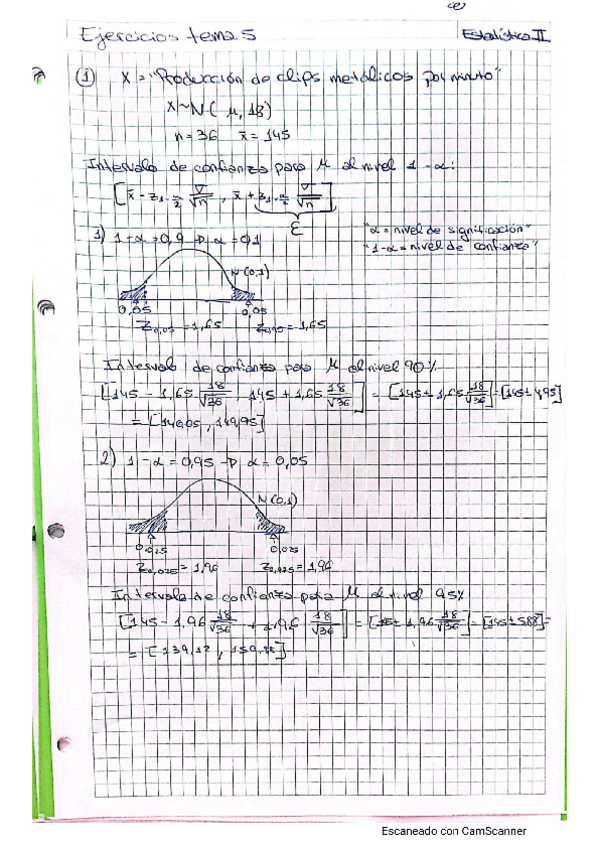 Ejercicios tema 5
Estadística II
① X = "Producción de clips metálicos por minuto"
X~N( μ, 18)
n = 36 x̄ = 145
Intervalo de confianza para μ al nivel 1 - α:
[x̄ - z₁₋α/₂ σ/√n , x̄ + z₁₋α/₂ σ/√n]
ε
"α = nivel de significación"
"1-α = nivel de confianza"
1) 1-α = 0,9 → α = 0,1
N(0,1)
0,05 0,05
Z₀,₀₅ = 1,65 Z₀,₉₅ = 1,65
Intervalo de confianza para μ al nivel 90%
[145 - 1,65 18/√36 , 145 + 1,65 18/√36] = [145 ± 1,65 18/√36] = [145 ± 4,95]
= [140,05 , 149,95]
2) 1-α = 0,95 → α = 0,05
N(0,1)
0,025 0,025
Z₀,₀₂₅ = 1,96 Z₀,₉₇₅ = 1,96
Intervalo de confianza para μ al nivel 95%
[145 - 1,96 18/√36 , 1,96 18/√36] = [145 ± 1,96 18/√36] = [145 ± 5,88] =
= [139,12 , 150,88]
Escaneado con CamScanner